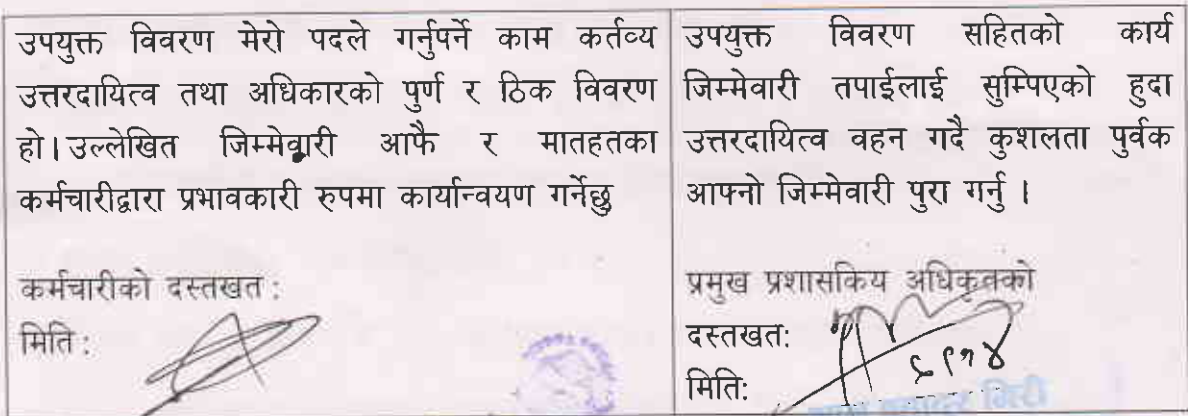 उपयुक्त विवरण मेरो पदले गर्नुपर्ने काम कर्तव्य
उत्तरदायित्व तथा अधिकारको पुर्ण र ठिक विवरण
हो। उल्लेखित जिम्मेवारी आफै र मातहतका
कर्मचारीद्वारा प्रभावकारी रुपमा कार्यान्वयण गर्नेछु
कर्मचारीको दस्तखत :
मिति :
उपयुक्त विवरण सहितको कार्य
जिम्मेवारी तपाईलाई सुम्पिएको हुदा
उत्तरदायित्व वहन गदै कुशलता पुर्वक
आफ्नो जिम्मेवारी पुरा गर्नु ।
प्रमुख प्रशासकिय अधिकृतको
दस्तखत:
मिति: